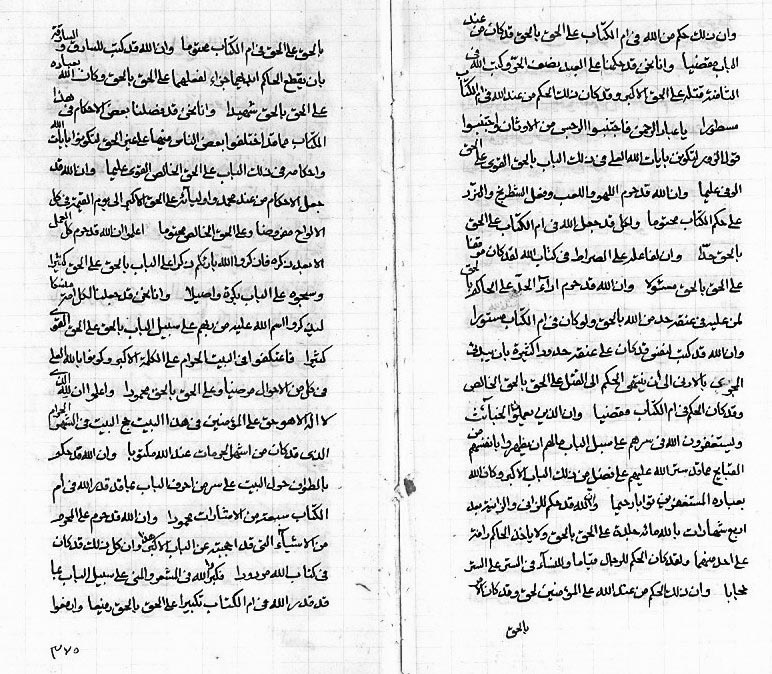 وان ذلك حكم من الله في ام الكتاب على الحق بالحق قد كان من عند
الباب مقضيا وانا نحن قد حكمنا على العبد بنصف الحق وكتب الله في
الثامنة قتله على الحق الاكبر وقد كان ذلك الحكم من عند الله في ام الكتاب
مسطورا يا عباد الرحمن فاجتنبوا الرجس من الاوثان واجتنبوا
قول الزور لتكونن بايات الله العلي في ذلك الباب بالحق القوي على الحق
الوفي عليما وان الله قد حرم اللهو واللعب وفعل الشطرنج والنرد
على حكم الكتاب محتوما ولكل قد جعل الله في ام الكتاب على الحق
بالحق حدا وان لفاعله على الصراط في كتاب الله لقد كان موقفا
على الحق بالحق مسئولا وان الله قد حرم اراءة الحد على الحاكم بالحق
لمن عليه في عنقه حد من الله بالحق ولو كان في ام الكتاب مستورا
وان الله قد كتب لنفس قد كان على عنقه حدودا كثيرة بان يبدء
المجرى بالادنى الى ان ينتهى الحكم الى القتل على الحق بالحق الخالص
وقد كان الحكم في ام الكتاب مقضيا وان الذين يعملون الخبائث
وليستغفرون الله في سرهم على سبيل الباب مالهم ان يظهروا بانفسهم من
القبايح مما قد ستر الله عليهم على فضل من ذلك الباب الاكبر وكان الله
بعباده المستغفرين توابا رحيما والله قد حكم للزاني والزانية بعد
اربع شهادات بالله مائة جلدة على الحق بالحق ولا ياخذ الحاكم رافة
على احد منهما ولقد كان الحكم للرجال قياما وللنساء في الستر على الستر
حجابا وان ذلك الحكم من عند الله على المؤمنين لحق وقد كان الامر
بالحق
بالحق على الحق في ام الكتاب محتوما وان الله قد كتب للسارق والسارقة
بان يقطع الحاكم ايديهما جزاء لفعلهما على الحق بالحق وكان الله بعباده
على الحق بالحق شهيدا وانا نحن قد فصلنا بعض الاحكام في هذا
الكتاب مما قد اختلفوا بعض الناس منها على غير الحق لتكونوا بايات الله
واحكامه في ذلك الباب على الحق الخالص القوي عليما وان الله قد
جعل الاحكام من عند محمد واوليائه على الحق الاكبر الى يوم القيمة في كل
الالواح مفروضا وعلى الحق الخالص محتوما اعلموا ان الله قد حرم كل العمل
الا بعد ذكره فاذكروا الله بارئكم ذكرا على الباب بالحق على الحق كثيرا
وسبحوه على الباب بكرة واصيلا وانا نحن قد جعلنا لكل امة منسكا
ليذكروا اسم الله عليه من ربهم على سبيل الباب بالحق على الحق القوي
كثيرا فاعتكفوا في البيت الحرام على الكلمة الاكبر وكونوا بالله العلي
في كل من الاحوال مرضيا وعلى الحق بالحق محمودا واعلموا ان لله الذي
لا اله الا هو حق على المؤمنين في هذا البيت حج البيت في الشهر الحرام
الذي قد كان من اشهر الحرمات عند الله مكتوبا وان الله قد حكم
بالطواف حول البيت على سر من احرف الباب عما قد قدر الله في ام
الكتاب سبعة من الاشارات محمودا وان الله قد حرم على المحرم
من الاشياء التي قد احجبته عن الباب الاكبر وان كل ذلك قد كان
في كتاب الله موجودا فكبروا الله في المشعر والمنى على سبيل الباب عما
قد قدر الله في ام الكتاب تكبيرا على الحق بالحق رفيعا وارفعوا
٣٧٥